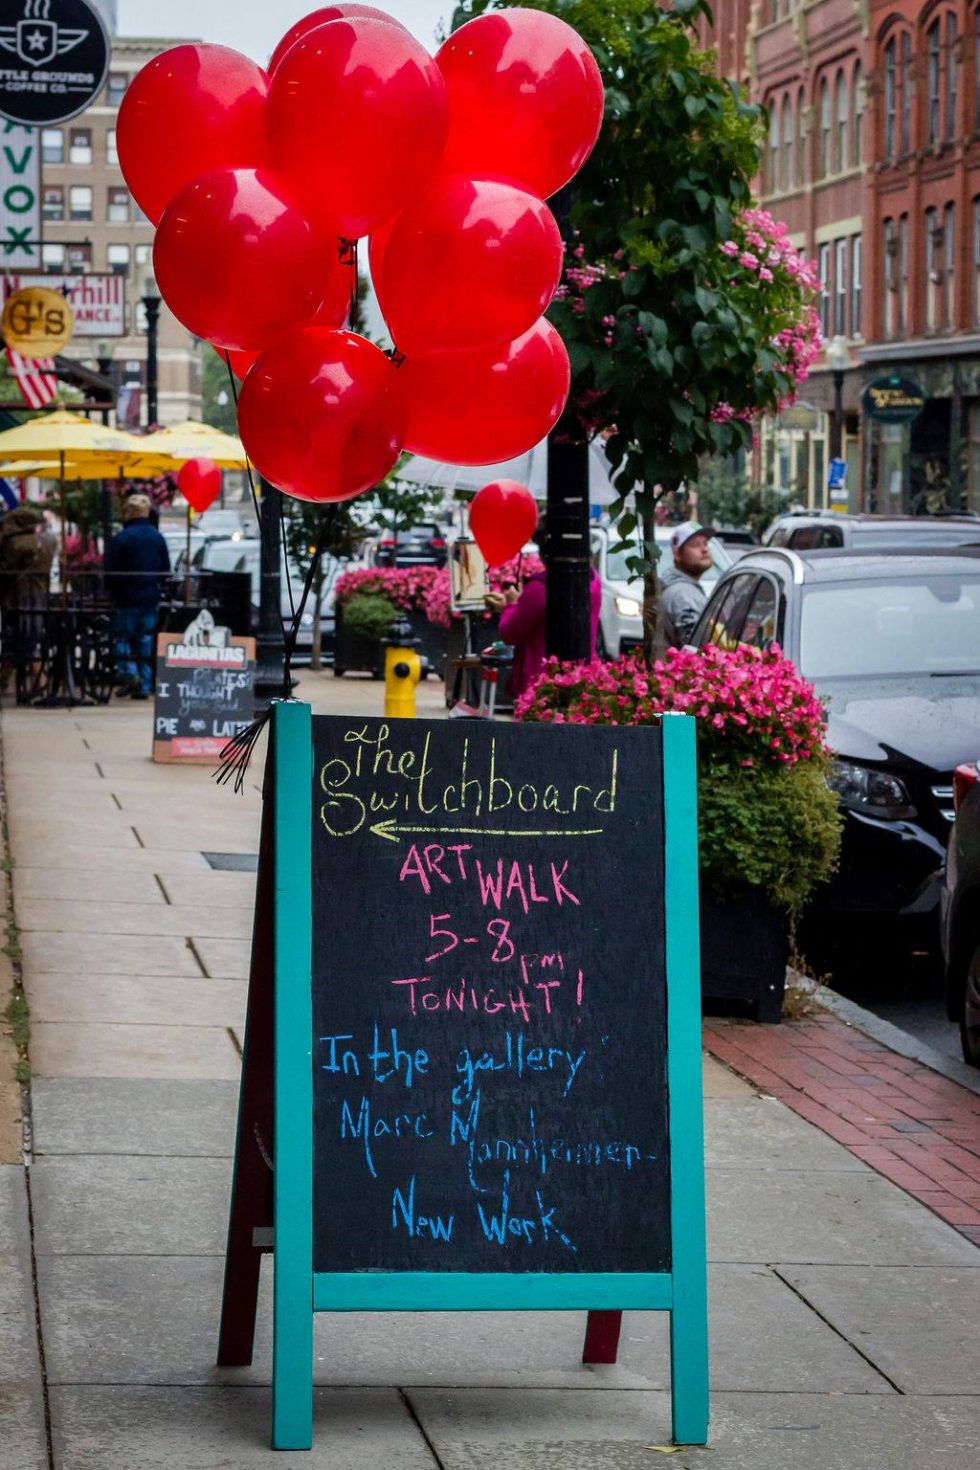 TTLE GROUNDS
COFFEE CO.
AVOX
G's
LAGUNITAS
PILATES?
I THOUGHT
you said
PIE AND LATTES
The
Switchboard
ART WALK
5-8pm
TONIGHT!
In the gallery:
Marc Mannheimer-
New Work